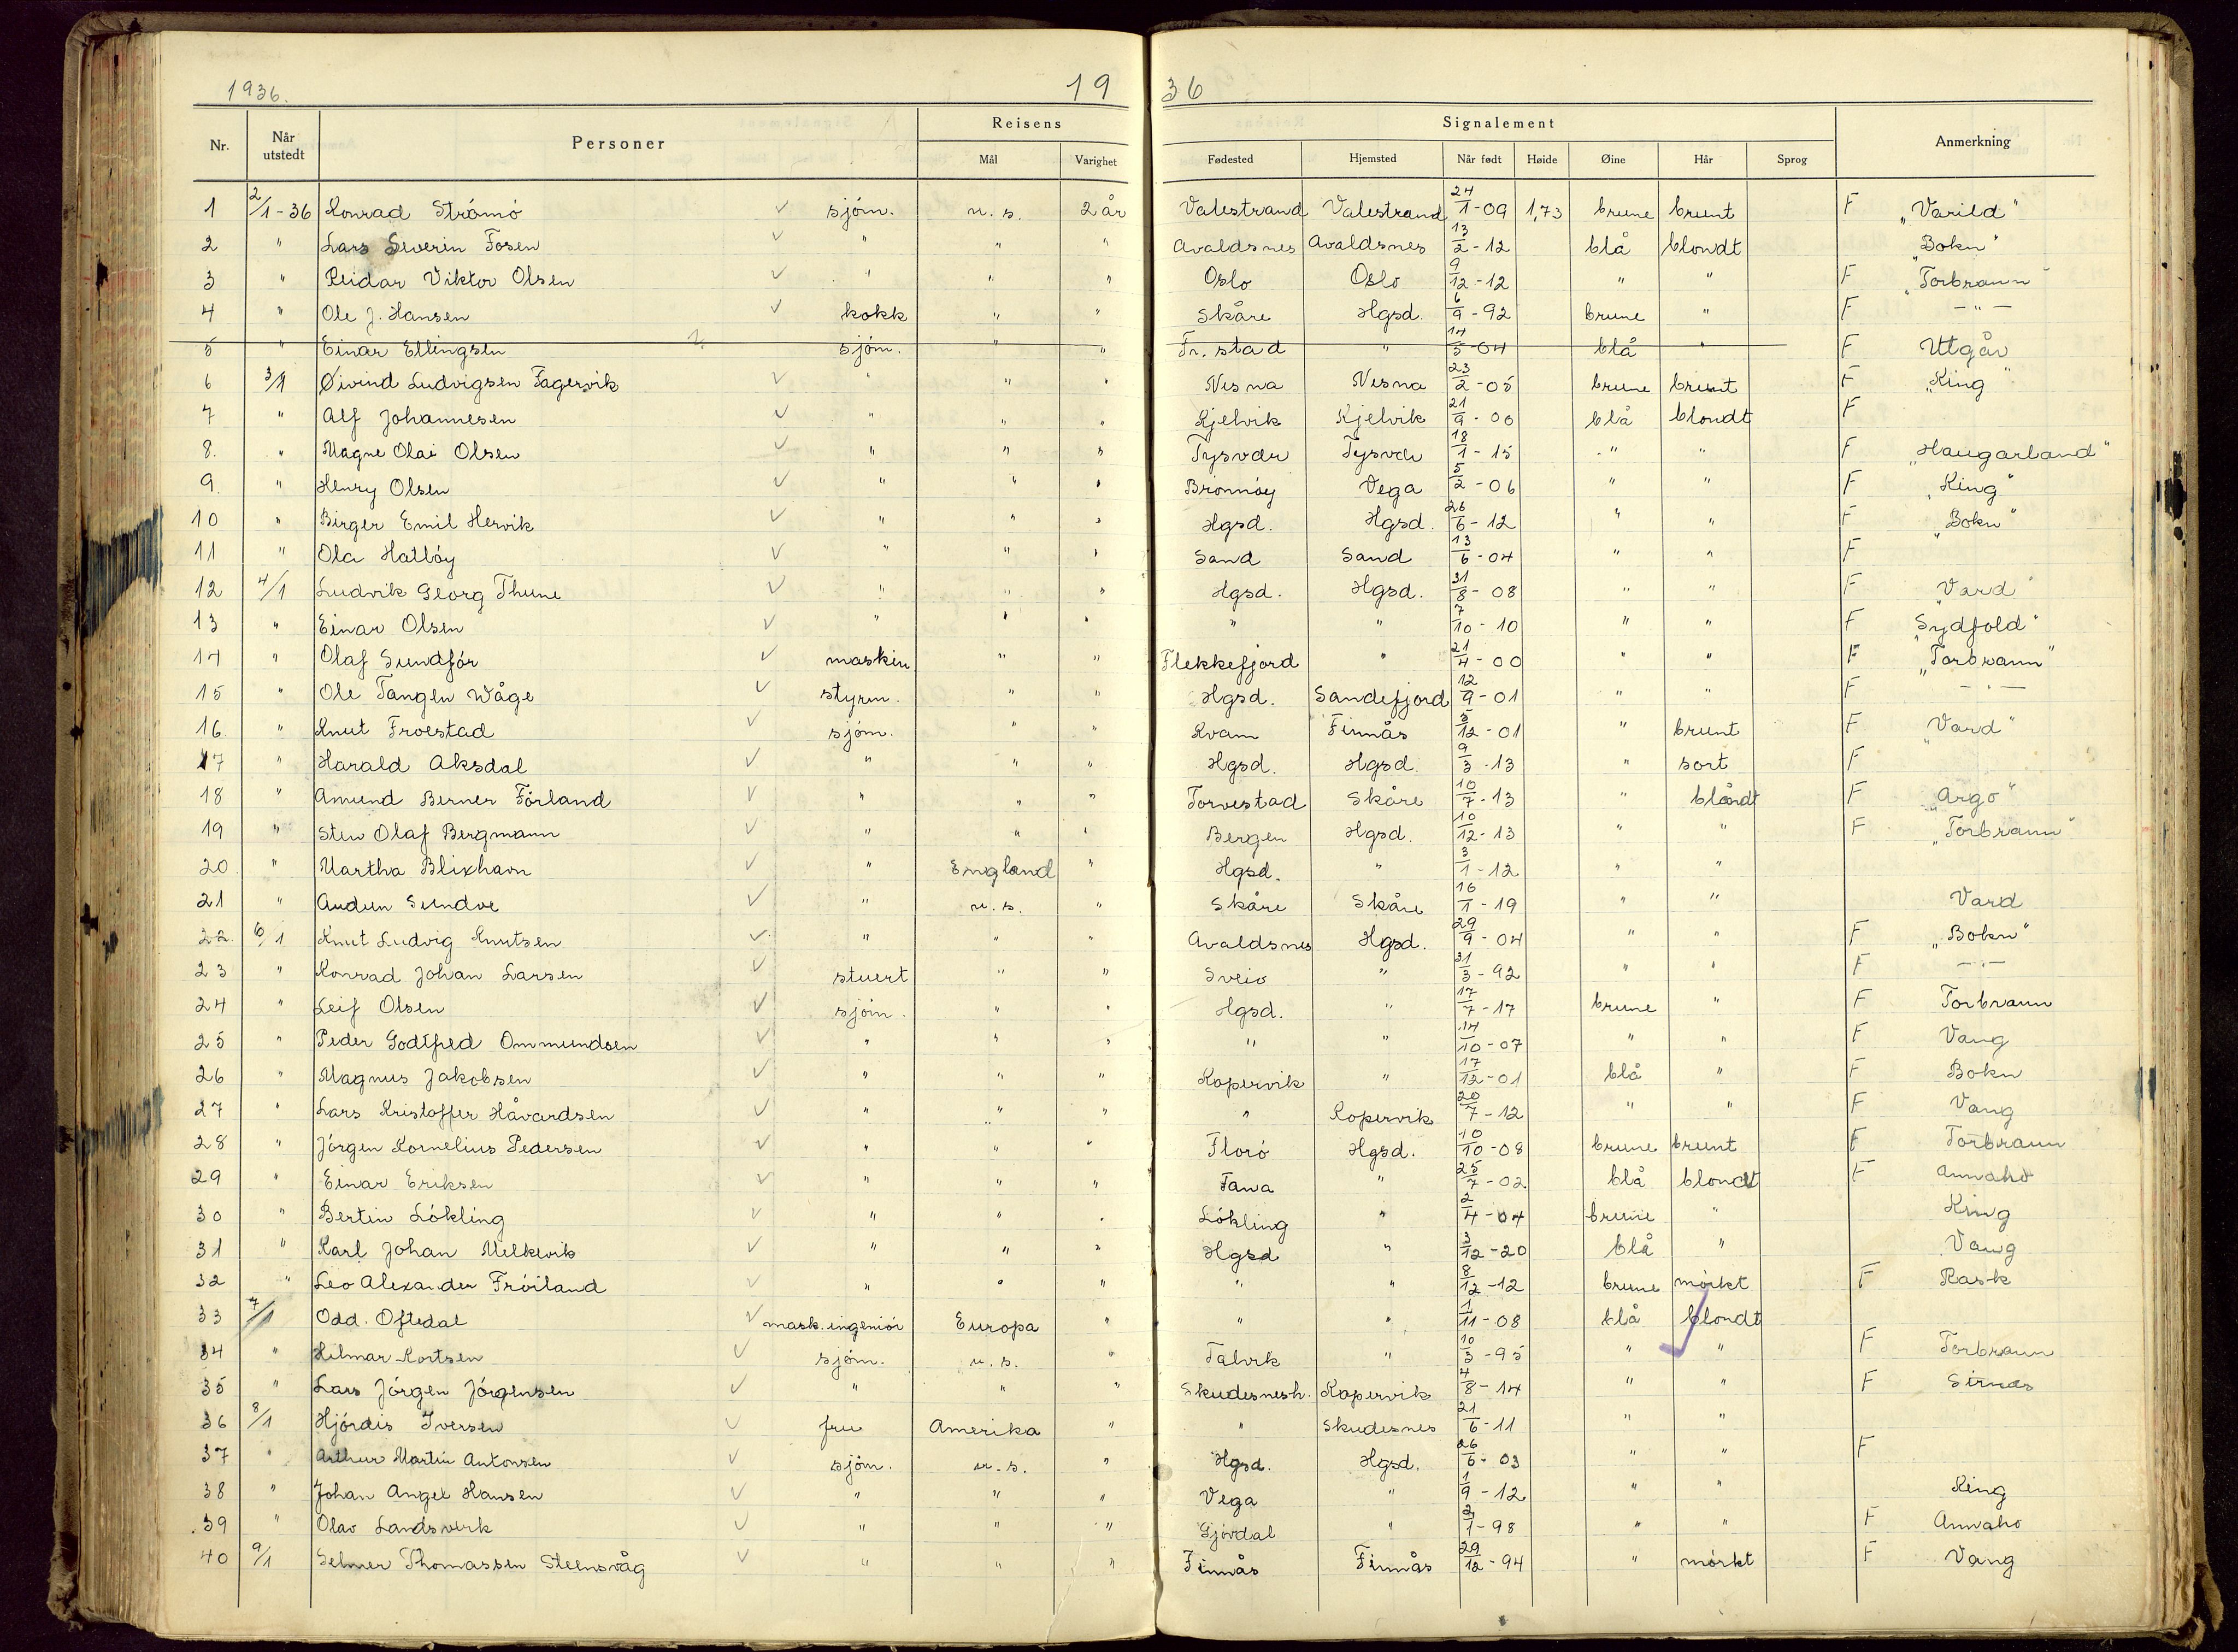 1936. 19 36
Nr. Når utstedt Personer Reisens Mål Varighet Signalement Fødested Hjemsted Når født Høide Øine Hår Sprog Anmerkning
1 2/1-36 Konrad Strömö ✓ sjöm. u.s. 2 år Valestrand Valestrand 24/1-09 1,73 brune brunt F „Varild"
2 " Lars Severin Fosen ✓ " " " Avaldsnes Avaldsnes 13/2-12 blå blondt „Bokn"
3 " Reidar Viktor Olsen ✓ " " " Oslo Oslo 9/12-12 " " F „Torbrann"
4 " Ole J. Hansen ✓ kokk " " Skåre Hgsd. 6/9-92 brune " F -"-
5 " Einar Ellingsen sjöm. " " Fr.stad " 14/5-04 blå " F Utgår
6 3/1 Øivind Ludvigsen Fagervik ✓ " " " Nesna Nesna 23/2-05 brune brunt F „King"
7 " Alf Johannesen ✓ " " " Kjelvik Kjelvik 21/9-00 blå blondt F
8. " Magne Olai Olsen ✓ " " " Tysvær Tysvær 18/1-15 " " F „Haugarland"
9. " Henry Olsen ✓ " " " Brönnöy Vega 5/2-06 " " F „King"
10 " Birger Emil Hervik ✓ " " " Hgsd. Hgsd. 26/6-12 " " F „Bokn"
11 " Ola Hatlöy ✓ " " " Sand Sand 13/6-04 " " F
12 4/1 Ludvik Georg Thune ✓ " " " Hgsd. Hgsd. 31/8-08 " " F „Vard"
13 " Einar Olsen ✓ " " " " " 7/10-10 " " F „Sydfold"
14 " Olaf Sundför ✓ maskin. " " Flekkefjord " 21/4-00 " " F „Torbrann"
15 " Ole Tangen Wåge ✓ styrm. " " Hgsd. Sandefjord 12/9-01 " " F -"-
16. " Knut Froestad ✓ sjöm. " " Kvam Finnås 5/12-01 " brunt F „Vard"
17 " Harald Aksdal ✓ " " " Hgsd. Hgsd. 9/3-13 " sort F
18 " Amund Berner Förland ✓ " " " Torvestad Skåre 10/7-13 " blondt F „Argo"
19 " Sten Olaf Bergmann ✓ " " " Bergen Hgsd. 10/12-13 " " F „Torbrann"
20. " Martha Blikhavn ✓ " England " Hgsd. " 3/1-12 " "
21 " Audun Sundve ✓ " u.s. " Skåre Skåre 16/1-19 " " Vard
22. 6/1 Knut Ludvig Knutsen ✓ " " " Avaldsnes Hgsd. 29/9-04 " " F „Bokn"
23 " Konrad Johan Larsen ✓ stuert " " Sveio " 31/3-92 " " F -"-
24 " Leif Olsen ✓ sjöm. " " Hgsd. " 17/7-17 brune " F Torbrann
25 " Peder Godtfred Ommundsen ✓ " " " " " 14/10-07 " " F Vang
26 " Magnus Jakobsen ✓ " " " Kopervik " 17/12-01 blå " F Bokn
27 " Lars Kristoffer Håvardsen ✓ " " " " Kopervik 20/7-12 " " F Vang
28 " Jörgen Kornelius Pedersen ✓ " " " Florö Hgsd. 10/10-08 brune brunt F Torbrann
29 " Einar Eriksen ✓ " " " Tana " 25/7-02. blå blondt F Annaho
30 " Bertin Lökling ✓ " " " Lökling " 2/4-04 brune " King
31 " Karl Johan Melkevik ✓ " " " Hgsd " 3/12-20 blå " Vang
32 " Leo Alexander Fröiland ✓ " " " " " 8/12-12 brune mörkt F Rask
33 7/1 Odd. Oftedal ✓ mask.ingeniör Europa " " " 1/11-08 blå blondt
34 " Hilmar Kortsen ✓ sjöm. u.s. " Talvik " 10/3-95 " " F Torbrann
35 " Lars Jörgen Jörgensen ✓ " " " Skudesnesh. Kopervik 4/8-14 " " F Sirnas
36 8/1 Hjördis Iversen ✓ fru Amerika " " Skudesnes 21/6-11 " "
37 " Arthur Martin Antonsen ✓ sjöm. u.s. " Hgsd. Hgsd. 26/6-03 " " F
38 " Johan Angel Hansen ✓ " " " Vega " 1/9-12. " " King
39 " Olav Landsverk ✓ " " " Gjövdal " 2/1-98 " " F Annaho
40 9/1 Selmer Thomassen Steensvåg ✓ " " " Finnås Finnås 29/12-94 " mörkt F Vang